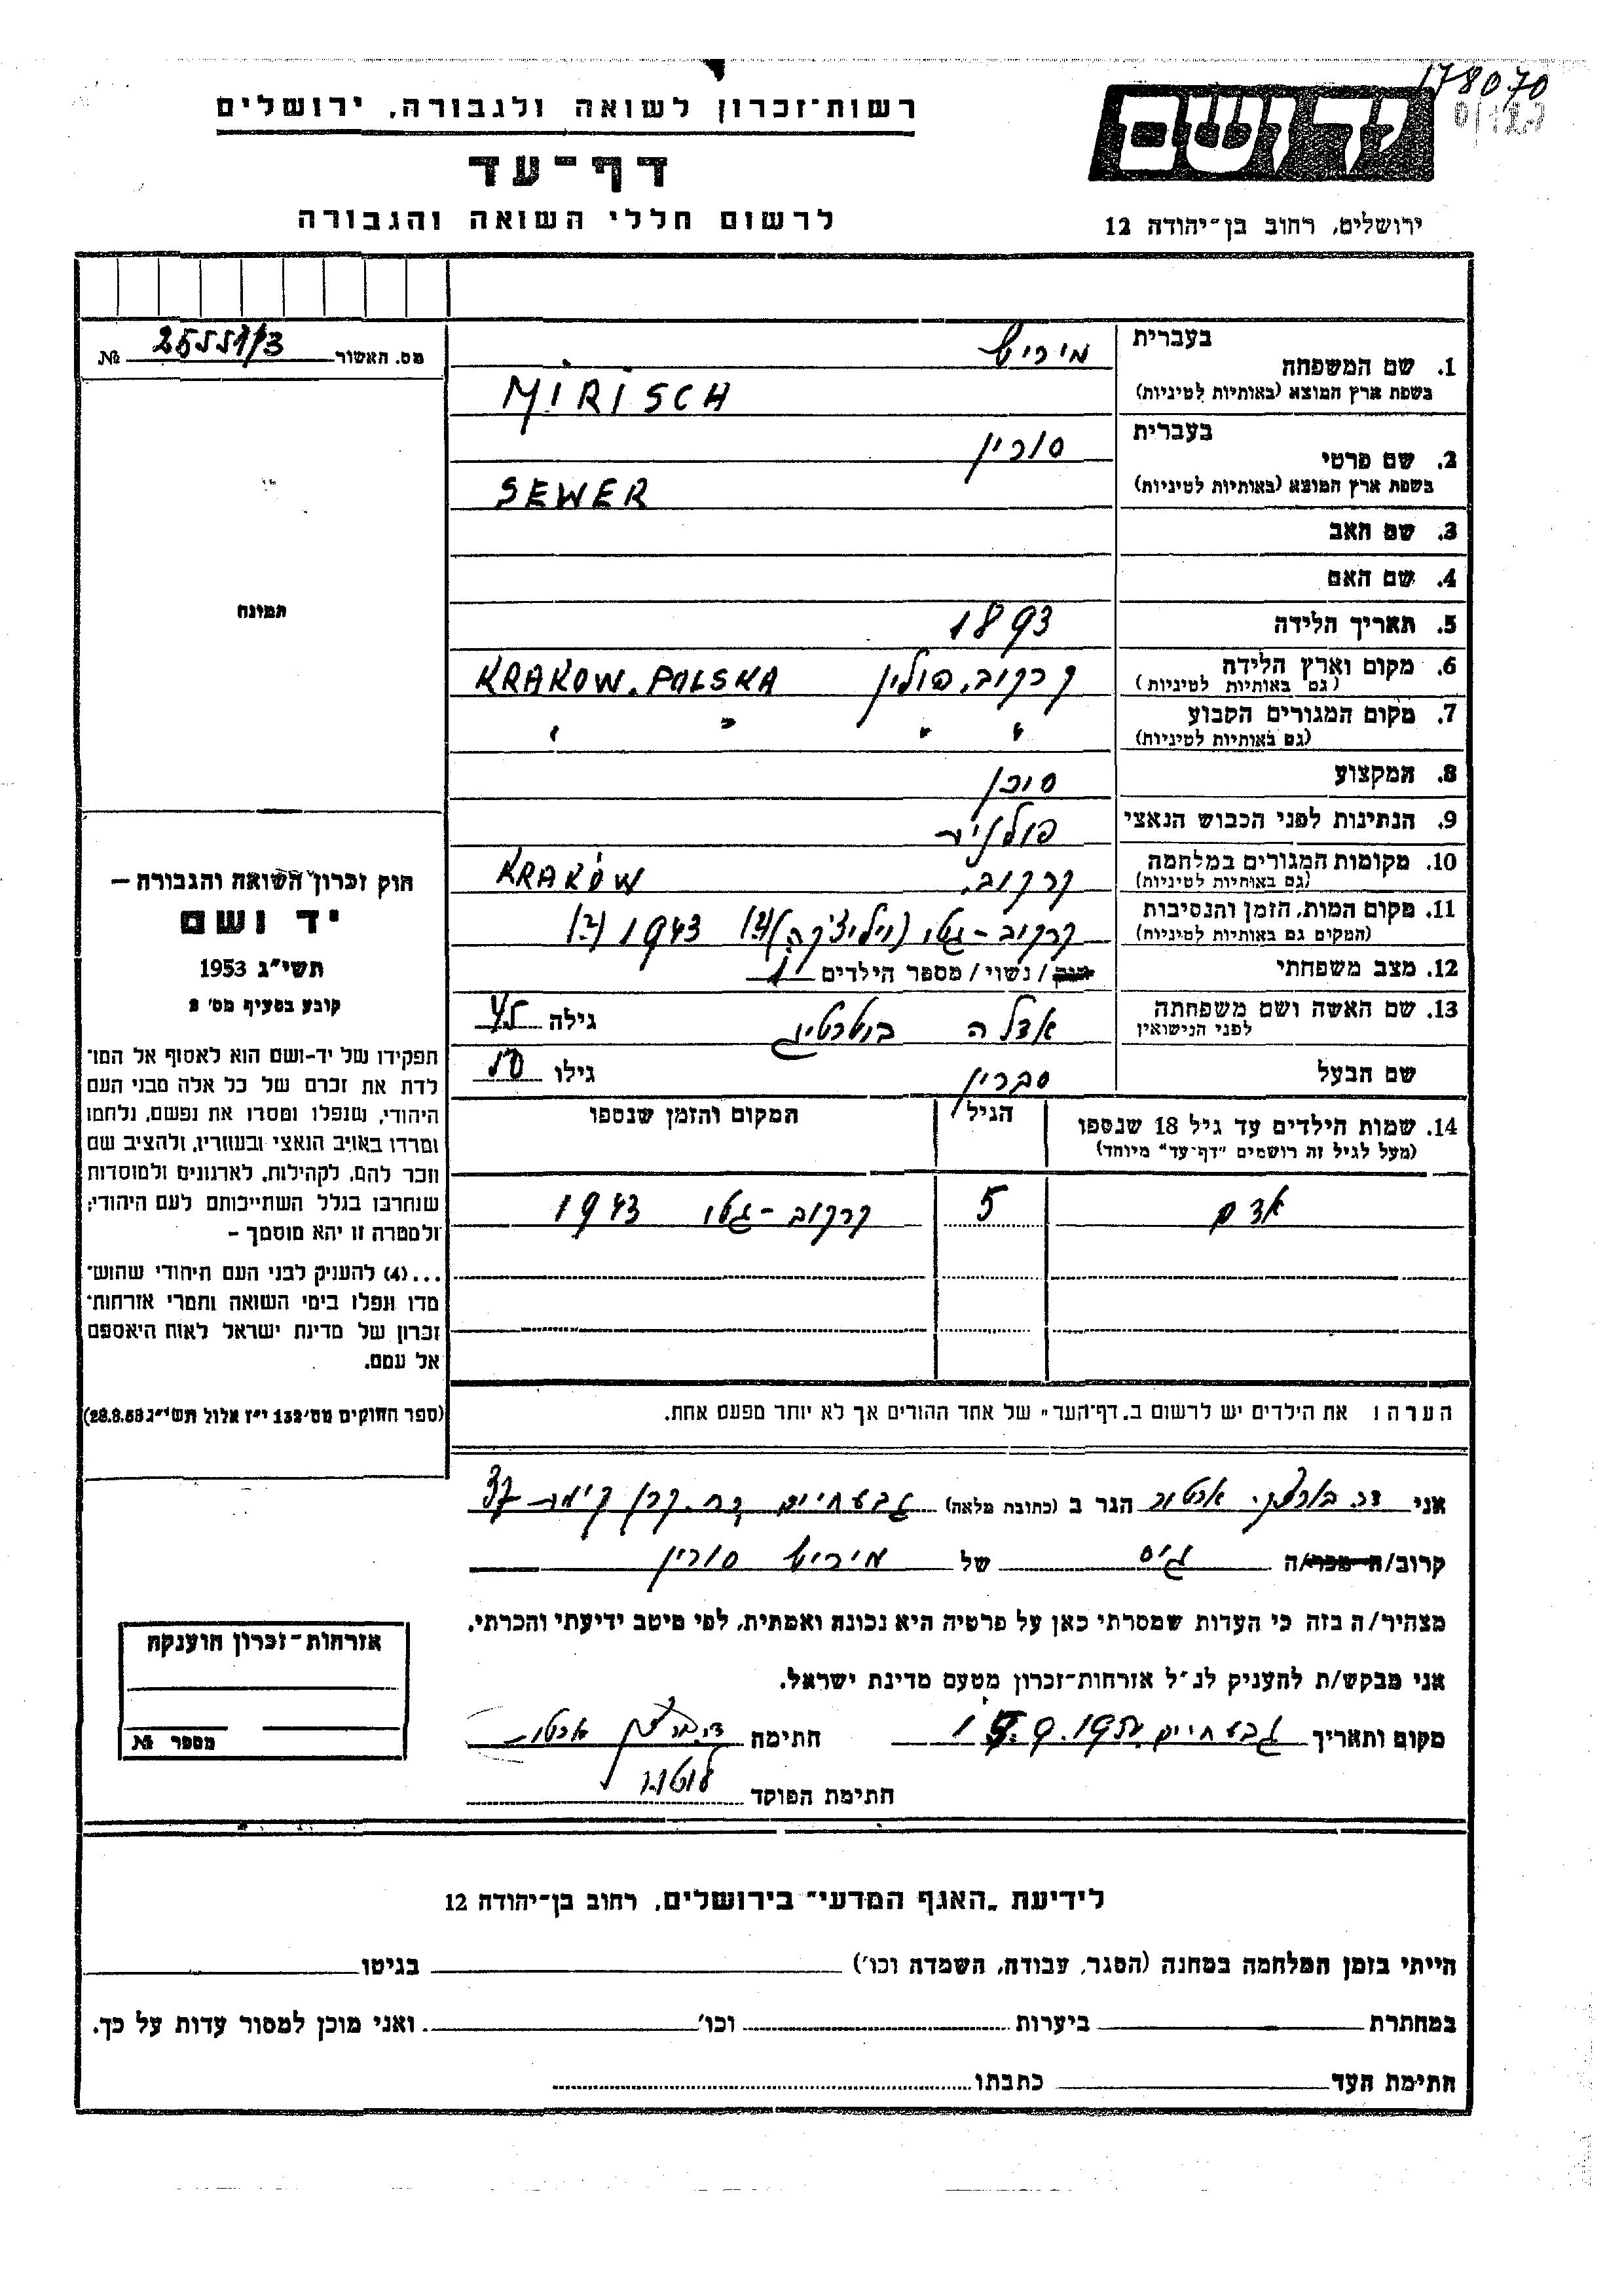 178070
רשות־זכרון לשואה ולגבורה, ירושלים
יד ושם
דף־עד
לרשום חללי השואה והגבורה
ירושלים, רחוב בן־יהודה 12
מס. האשור № 
1. שם המשפחה
בעברית מיריש
בשפת ארץ המוצא (באותיות לטיניות) MIRISCH
2. שם פרטי
בעברית סורין
בשפת ארץ המוצא (באותיות לטיניות) SEWER
3. שם האב
4. שם האם
5. תאריך הלידה 1893
6. מקום וארץ הלידה קרקוב, פולין KRAKOW. POLSKA
(גם באותיות לטיניות)
7. מקום המגורים הקבוע " " " "
(גם באותיות לטיניות)
8. המקצוע סוכן
9. הנתינות לפני הכבוש הנאצי פולנית
10. מקומות המגורים במלחמה קרקוב, KRAKÓW
(גם באותיות לטיניות)
11. מקום המות, הזמן והנסיבות קרקוב-גטו (ויליצ'קה) (?) 1943 (?)
(המקום גם באותיות לטיניות)
12. מצב משפחתי / נשוי / מספר הילדים 1
13. שם האשה ושם משפחתה אדלה גילה 45
לפני הנישואין
שם הבעל סברין גילו 50
14. שמות הילדים עד גיל 18 שנספו הגיל המקום והזמן שנספו
(מעל לגיל זה רושמים "דף־עד" מיוחד)
אדם 5 קרקוב-גטו 1943
הערה: את הילדים יש לרשום ב„דף־העד" של אחד ההורים אך לא יותר מפעם אחת.
תמונה
חוק זכרון השואה והגבורה —
יד ושם
תשי"ג 1953
קובע בסעיף מס' 2
תפקידו של יד-ושם הוא לאסוף אל המו־
לדת את זכרם של כל אלה מבני העם
היהודי, שנפלו ומסרו את נפשם, נלחמו
ומרדו באויב הנאצי ובעוזריו, ולהציב שם
וזכר להם, לקהילות, לארגונים ולמוסדות
שנחרבו בגלל השתייכותם לעם היהודי;
ולמטרה זו יהא מוסמך –
...(4) להעניק לבני העם היהודי שהוש־
מדו ונפלו בימי השואה והמרי אזרחות־
זכרון של מדינת ישראל לאות היאספם
אל עמם.
(ספר החוקים מס' 132 י"ז אלול תשי"ג 28.8.53)
אני דר. ארטור הגר ב (כתובת מלאה) גבעתיים רח. קרן קימת 37
קרוב/ה גיס של מיריש סורין
מצהיר/ה בזה כי העדות שמסרתי כאן על פרטיה היא נכונה ואמתית, לפי מיטב ידיעתי והכרתי.
אני מבקש/ת להעניק לנ"ל אזרחות־זכרון מטעם מדינת ישראל.
מקום ותאריך גבעתיים חתימה
חתימת הפוקד
אזרחות־זכרון הוענקה
מספר №
לידיעת „האגף המדעי" בירושלים, רחוב בן־יהודה 12
הייתי בזמן המלחמה במחנה (הסגר, עבודה, השמדה וכו') בגיטו
במחתרת ביערות וכו' ואני מוכן למסור עדות על כך.
חתימת העד כתבתו